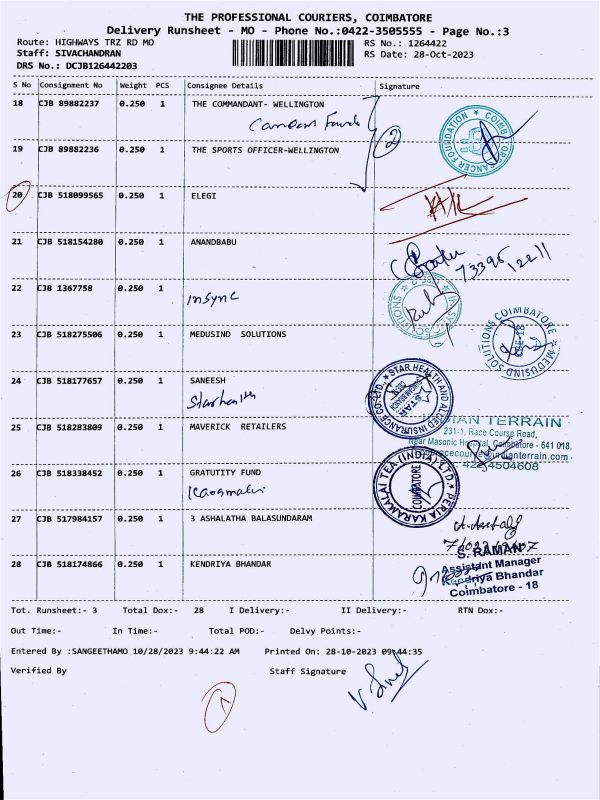 THE PROFESSIONAL COURIERS, COIMBATORE
Delivery Runsheet - MO - Phone No.:0422-3505555 - Page No.:3
Route: HIGHWAYS TRZ RD MO
RS No.: 1264422
Staff: SIVACHANDRAN
RS Date: 28-Oct-2023
DRS No.: DCJB126442203
S No Consignment No Weight PCS Consignee Details Signature
18 CJB 89882237 0.250 1 THE COMMANDANT- WELLINGTON
2
COIMBATORE CANCER FOUNDATION
19 CJB 89882236 0.250 1 THE SPORTS OFFICER-WELLINGTON
20 CJB 518099565 0.250 1 ELEGI
21 CJB 518154280 0.250 1 ANANDBABU
22 CJB 1367758 0.250 1
Insync
23 CJB 518275506 0.250 1 MEDUSIND SOLUTIONS
COIMBATORE MEDUSIND SOLUTIONS
24 CJB 518177657 0.250 1 SANEESH
Starhealth
STAR HEALTH AND ALLIED INSURANCE CO. LTD.
STAR
25 CJB 518283809 0.250 1 MAVERICK RETAILERS
TERRAIN
231-1, Race Course Road,
Near Masonic Hospital, Coimbatore - 641 018,
26 CJB 518338452 0.250 1 GRATUTITY FUND
PERIA KARAMALAI TEA (INDIA) LTD.
COIMBATORE
27 CJB 517984157 0.250 1 3 ASHALATHA BALASUNDARAM
28 CJB 518174866 0.250 1 KENDRIYA BHANDAR
S. RAMAN
Assistant Manager
Kendriya Bhandar
Coimbatore - 18
Tot. Runsheet:- 3 Total Dox:- 28 I Delivery:- II Delivery:- RTN Dox:-
Out Time:- In Time:- Total POD:- Delvy Points:-
Entered By :SANGEETHAMO 10/28/2023 9:44:22 AM Printed On: 28-10-2023 09:44:35
Verified By Staff Signature
1